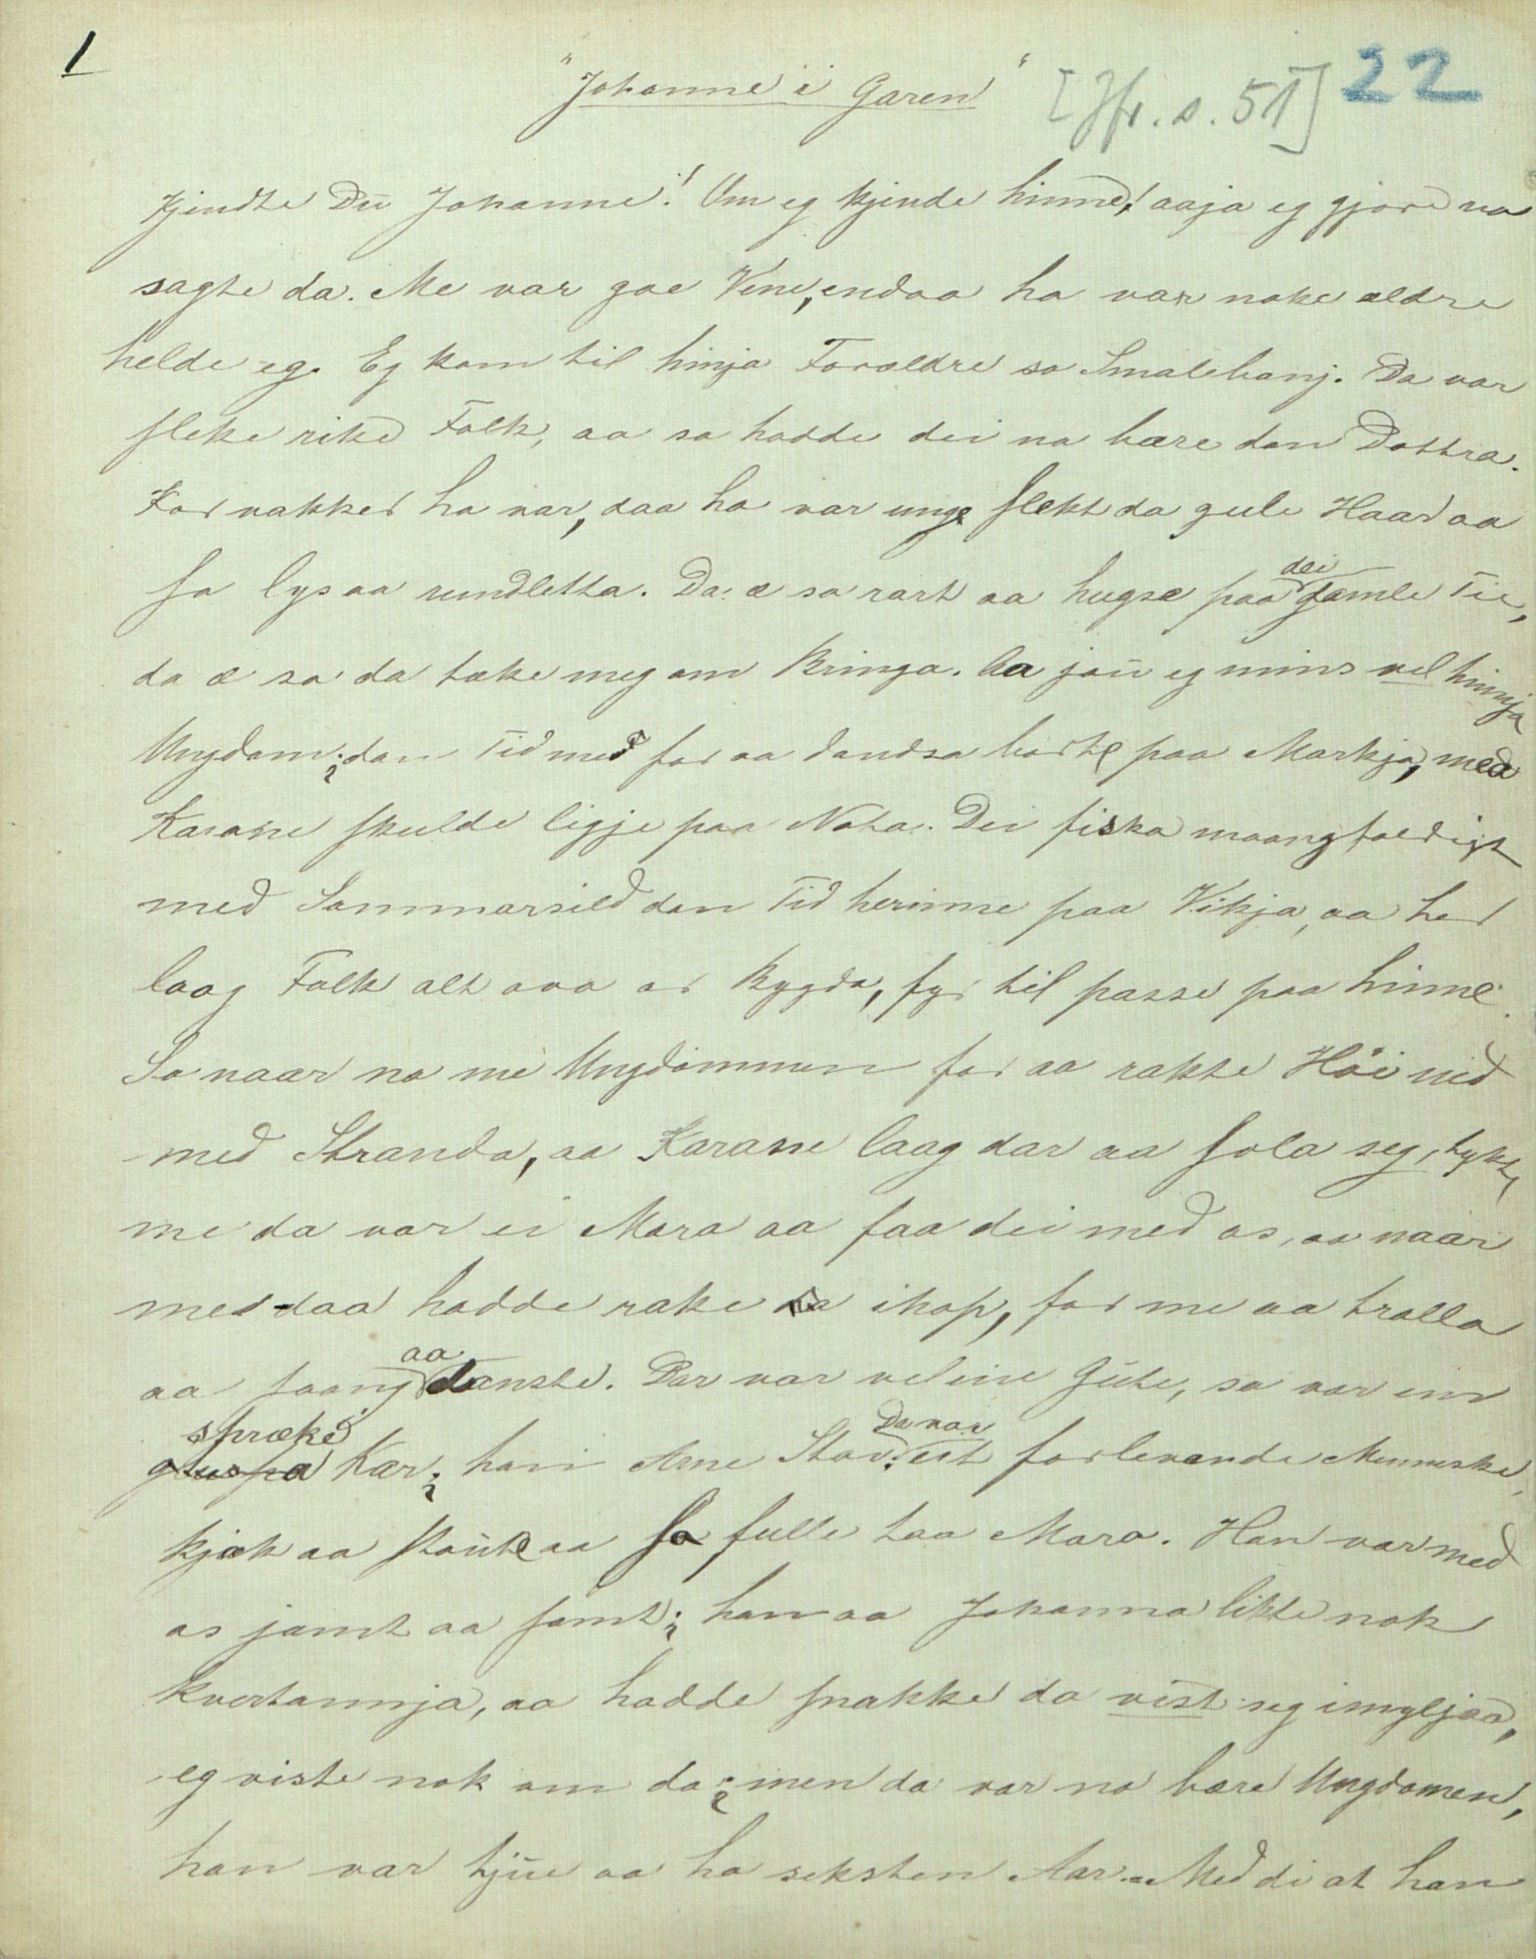 1
"Johanne i Garen"
[Jfr. s. 51]
22
Kjendte Du Johanne! Um eg kjende hinne! aaja eg gjore no
sagte da. Me var goe Vene, endaa ho var noke ældre
helde eg. Eg kom til hinja Forældre so Smalehanj. Da var
sleke rike Folk, aa so hadde dei no bære don Dottra.
Kor vakker ho var, daa ho var unge slekt da gule Haar aa
so lys aa rundletta. Da æ so rart aa hugse paa dei gamle Tie,
da æ so da take meg om Bringa. Aa jau eg mins vel hinnja
Ungdom; don Tid me for aa dandsa borte paa Markja, med
Karane skulde ligje paa Nota. Dei fiska maangfoldigt
med Sommarsild don Tid herinne paa Vikja, aa her
laag Folk alt ova or Bygda, fyr til passe paa hinne.
So naar no me Ungdommen for aa rakte Höi ned
med Stranda, aa Karane laag dar aa sola seg, tykte
me da var ei Mora aa faa dei med os, aa naar
me daa hadde rake ihop, for me aa tralla
aa saang aa danste. Dar var vel eine Gute, so var ein
spræke gluspa Kar; han Arne Stor. Da var eit forlevande Menneske,
kjæk aa staut aa so fulle taa Moro. Han var med
os jamt aa samt; han aa Johanna likte nok
kvortannja, aa hadde snakke da vist seg imyljaa,
eg viste nok om da; men da var no bære Ungdomen,
han var tjue aa ho seksten Aar. Med di at han